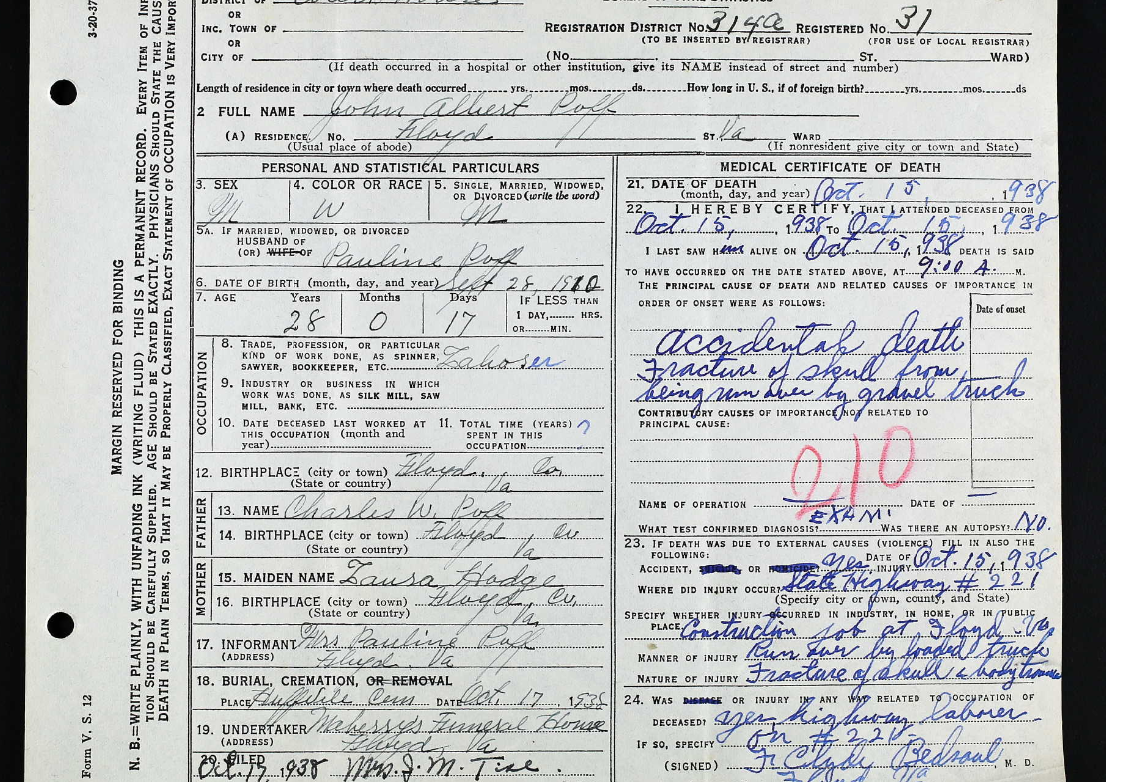 3-20-37
MARGIN RESERVED FOR BINDING
N. B.=WRITE PLAINLY, WITH UNFADING INK (WRITING FLUID) THIS IS A PERMANENT RECORD. EVERY ITEM OF
TION SHOULD BE CAREFULLY SUPPLIED. AGE SHOULD BE STATED EXACTLY. PHYSICIANS SHOULD STATE THE
DEATH IN PLAIN TERMS, SO THAT IT MAY BE PROPERLY CLASSIFIED. EXACT STATEMENT OF OCCUPATION IS VERY
Form V. S. 12
DISTRICT OF
OR
INC. TOWN OF
OR
CITY OF
REGISTRATION DISTRICT No. 314a REGISTERED No. 31
(TO BE INSERTED BY REGISTRAR) (FOR USE OF LOCAL REGISTRAR)
(No. ST. WARD)
(If death occurred in a hospital or other institution, give its NAME instead of street and number)
Length of residence in city or town where death occurred yrs. mos. ds. How long in U. S., if of foreign birth? yrs. mos. ds
2 FULL NAME John Albert Poff
(A) RESIDENCE. No. Floyd ST. Va WARD
(Usual place of abode) (If nonresident give city or town and State)
PERSONAL AND STATISTICAL PARTICULARS
3. SEX 4. COLOR OR RACE 5. SINGLE, MARRIED, WIDOWED,
OR DIVORCED (write the word)
M W M
5A. IF MARRIED, WIDOWED, OR DIVORCED
HUSBAND OF
(OR) WIFE OF Pauline Poff
6. DATE OF BIRTH (month, day, and year) Sept 28, 1910
7. AGE Years Months Days IF LESS THAN
1 DAY, HRS.
OR MIN.
28 0 17
OCCUPATION
8. TRADE, PROFESSION, OR PARTICULAR
KIND OF WORK DONE, AS SPINNER,
SAWYER, BOOKKEEPER, ETC. Laborer
9. INDUSTRY OR BUSINESS IN WHICH
WORK WAS DONE, AS SILK MILL, SAW
MILL, BANK, ETC.
10. DATE DECEASED LAST WORKED AT
THIS OCCUPATION (month and
year)
11. TOTAL TIME (YEARS) ?
SPENT IN THIS
OCCUPATION
12. BIRTHPLACE (city or town) Floyd, Co
(State or country) Va
FATHER
13. NAME Charles W. Poff
14. BIRTHPLACE (city or town) Floyd Co
(State or country) Va
MOTHER
15. MAIDEN NAME Laura Hodge
16. BIRTHPLACE (city or town) Floyd, Co.
(State or country) Va
17. INFORMANT Mrs Pauline Poff
(ADDRESS) Floyd, Va
18. BURIAL, CREMATION, OR REMOVAL
PLACE Cem DATE Oct. 17 1938
19. UNDERTAKER Funeral House
(ADDRESS) Floyd, Va
20. FILED
Oct. 17, 1938 Mrs. J. M.
MEDICAL CERTIFICATE OF DEATH
21. DATE OF DEATH
(month, day, and year) Oct. 15, 1938
22. I HEREBY CERTIFY, THAT I ATTENDED DECEASED FROM
Oct. 15, 1938 TO Oct 15, 1938
I LAST SAW HIM ALIVE ON Oct 15, 1938 DEATH IS SAID
TO HAVE OCCURRED ON THE DATE STATED ABOVE, AT 9:00 A. M.
THE PRINCIPAL CAUSE OF DEATH AND RELATED CAUSES OF IMPORTANCE IN
ORDER OF ONSET WERE AS FOLLOWS:
Date of onset
Accidental death
Fracture of skull from
being run over by gravel truck
CONTRIBUTORY CAUSES OF IMPORTANCE NOT RELATED TO
PRINCIPAL CAUSE:
210
NAME OF OPERATION DATE OF
WHAT TEST CONFIRMED DIAGNOSIS? EXAM. WAS THERE AN AUTOPSY? No.
23. IF DEATH WAS DUE TO EXTERNAL CAUSES (VIOLENCE) FILL IN ALSO THE
FOLLOWING:
ACCIDENT, SUICIDE, OR HOMICIDE? yes DATE OF INJURY Oct. 15, 1938
WHERE DID INJURY OCCUR? State Highway # 221
(Specify city or town, county, and State)
SPECIFY WHETHER INJURY OCCURRED IN INDUSTRY, IN HOME, OR IN PUBLIC
PLACE. Construction job at Floyd, Va
MANNER OF INJURY Run over by loaded truck
NATURE OF INJURY Fracture of skull & body trauma
24. WAS DISEASE OR INJURY IN ANY WAY RELATED TO OCCUPATION OF
DECEASED? yes, highway laborer
IF SO, SPECIFY on # 221
(SIGNED) M. D.
Floyd Va